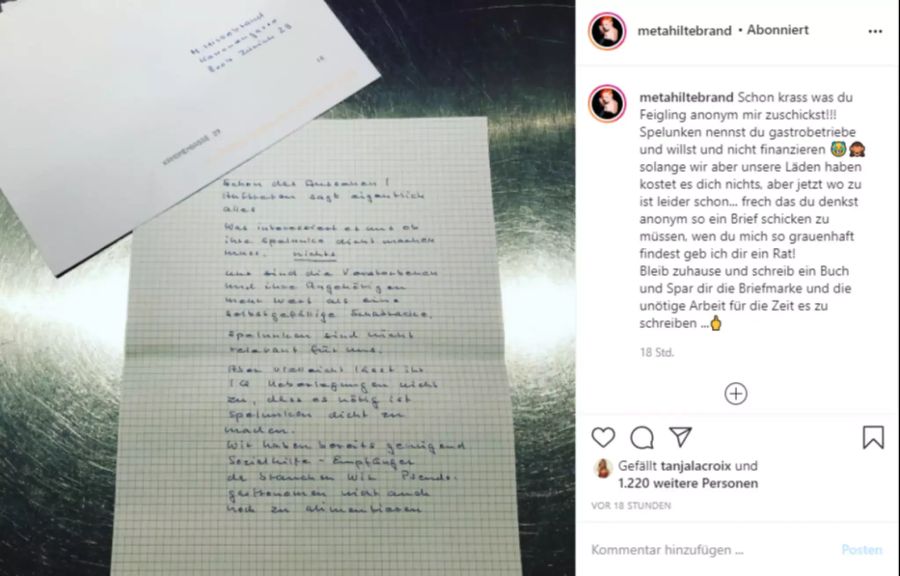 Hiltebrand
KANONENGASSE 29
Schon das Aussehen !
Auftreten sagt eigentlich
alles
Was interessiert es uns ob
ihre Spelunke dicht machen
muss. nichts
Uns sind die Verstorbenen
und ihre Angehörigen
mehr Wert als eine
selbstgefällige Schabracke.
Spelunken sind nicht
relevant für uns.
Aber vielleicht lässt ihr
I.Q Ueberlegungen nicht
zu, dass es nötig ist
Spelunken dicht zu
machen.
Wir haben bereits genügend
Sozialhilfe - Empfänger
da brauchen wir Pseudo-
gastronomen nicht auch
noch zu alimentieren
metahiltebrand • Abonniert
metahiltebrand Schon krass was du
Feigling anonym mir zuschickst!!!
Spelunken nennst du gastrobetriebe
und willst und nicht finanzieren 🤮🙈
solange wir aber unsere Läden haben
kostet es dich nichts, aber jetzt wo zu
ist leider schon... frech das du denkst
anonym so ein Brief schicken zu
müssen, wen du mich so grauenhaft
findest geb ich dir ein Rat!
Bleib zuhause und schreib ein Buch
und Spar dir die Briefmarke und die
unötige Arbeit für die Zeit es zu
schreiben ...🖕
18 Std.
Gefällt tanjalacroix und
1.220 weitere Personen
VOR 18 STUNDEN
Kommentar hinzufügen ...
Posten